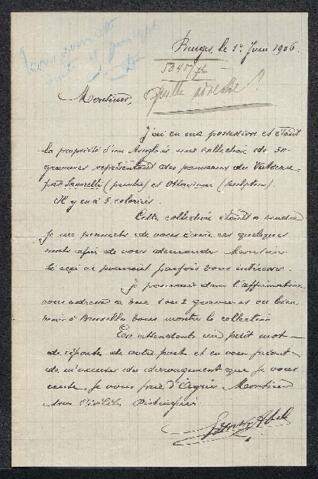 Bruges, le 1er Juin 1906
5045/
quelle adresse?
Monsieur,
J'ai en ma possession et étant
la propriété d'un Anglais une collection de 30
gravures représentant des panneaux du Vatican
par (peintre) et Ottaviani (sculpteur).
Il y en a 5 coloriées.
Cette collection étant à vendre
je me permets de vous écrire ces quelques
mots afin de vous demander Monsieur
si ceci ne pourrait parfois vous intéresser.
Je pourrais dans l'affirmative
vous adresser 1 ou 2 gravures ou bien
venir à Bruxelles vous montrer la collection
En attendant un petit mot
de réponse de votre part et en vous priant
de m'excuser du dérangement que je vous
cause, je vous prie d'agréer Monsieur
mes civilités distinguées